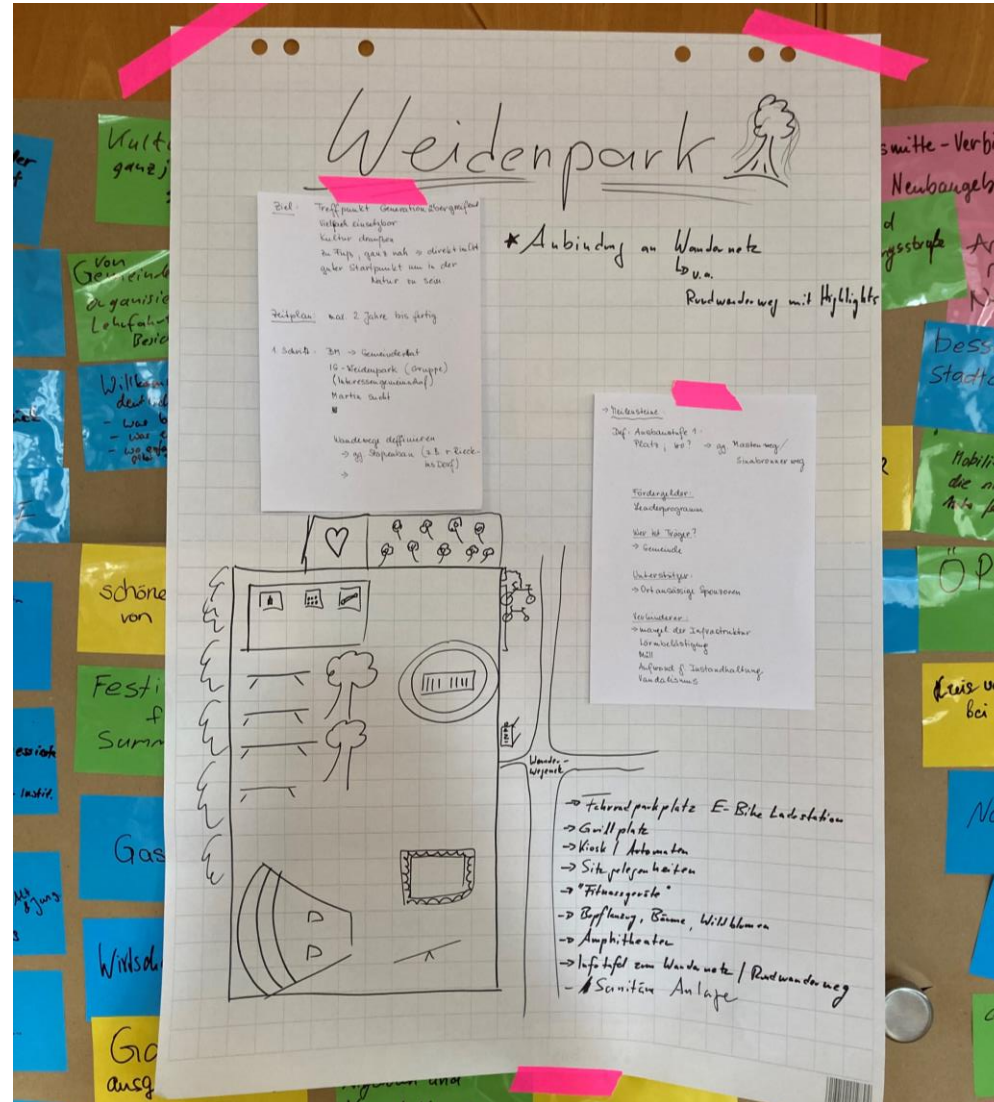 Weidenpark
Ziel: Treffpunkt Generationübergreifend
Vielfach einsetzbar
Kultur draußen
zu Fuß, ganz nah → direkt im Ort
guter Startpunkt um in der
Natur zu sein.
Zeitplan: max. 2 Jahre bis fertig
1. Schritt: BM → Gemeinderat
IG-Weidenpark (Gruppe)
(Interessengemeinschaft)
Martin sucht
Wanderwege deffinieren
→ gg.
→
* Anbindung an Wandernetz
↳ u.a.
Rundwanderweg mit Highlights
→ Meilensteine:
Def: Ausbaustufe 1:
Platz, wo? → gg.
Fördergelder:
Leaderprogramm
Wer ist Träger?
→ Gemeinde
Unterstützer:
→ Ortansässige Sponsoren
Verhinderer:
→ mangel der Infrastruktur
Lärmbelästigung
Müll
Aufwand f. Instandhaltung
Vandalismus
Wander-
wegenetz
→ Fahrradparkplatz E-Bike Ladestation
→ Grillplatz
→ Kiosk / Automaten
→ Sitzgelegenheiten
→ "Fitnessgeräte"
→ Bepflanzug, Bäume, Wildblumen
→ Amphitheater
→ Infotafel zum Wandernetz / Rundwanderweg
- Sanitäre Anlage
Kult
ganzj
von
Gemeinde
organisie
Lehrfah
Besic
Willkom
- was
- wo
schöne
von
Festi
f
Summ
Gas
Wirtsch
Ga
ausg
smitte-Verbi
Neubaugeb
ngsstraße
bess
Stadt
Mobili
die n
Auto f
ÖP
Kreis v
bei
No
und